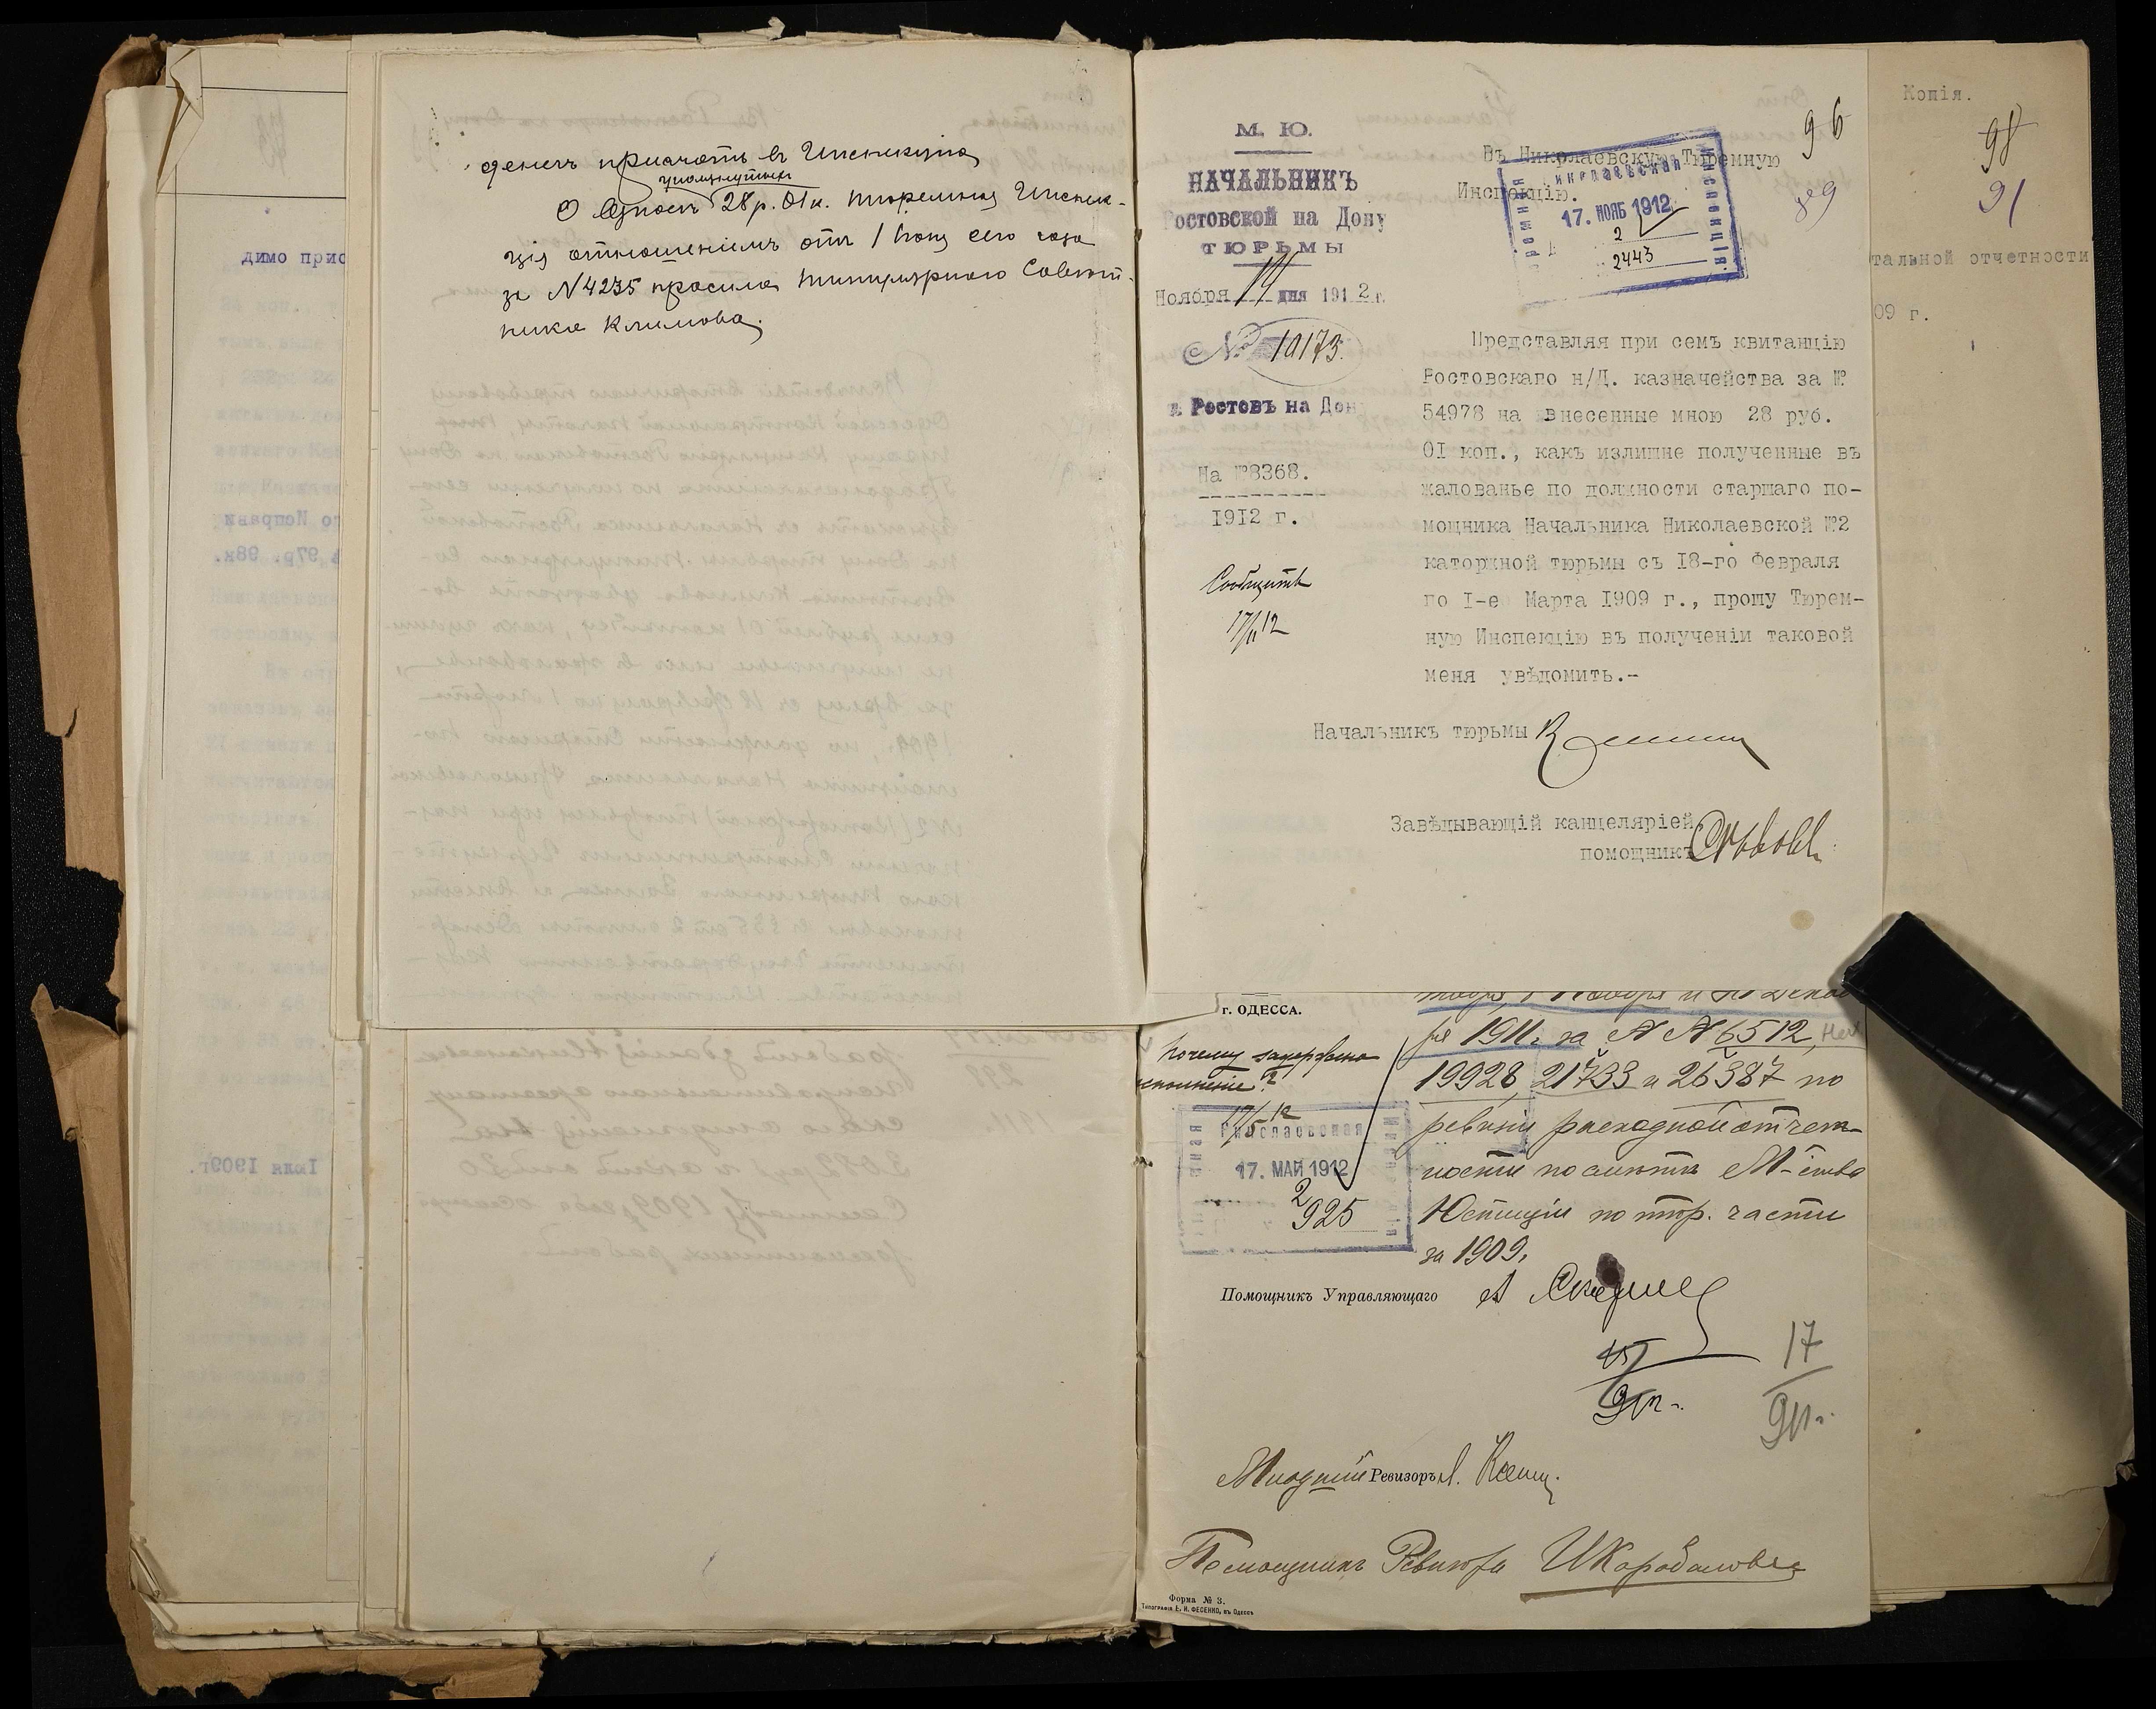 денегъ прислать въ Инспекцію
упомянутыхъ
О взносѣ 28 р. 01 к. тюремная Инспек-
ція отношеніемъ отъ 1 Іюня сего года
за № 4235 просила титулярнаго Совѣт-
ника Климова.
димо прис
М. Ю.
НАЧАЛЬНИКЪ
Ростовской на Дону
ТЮРЬМЫ
Ноября 14 дня 1912 г.
№ 10173.
г. Ростовъ на Дону
На №8368.
1912 г.
Сообщить
17/11 12
96
89
Въ Николаевскую Тюремную
Инспекцію.
Николаевская
Тюремная
Инспекція.
17. НОЯБ 1912
2
2443
Представляя при семъ квитанцію
Ростовскаго н/Д. казначейства за №
54978 на внесенные мною 28 руб.
01 коп., какъ излишне полученные въ
жалованье по должности старшаго по-
мощника Начальника Николаевской №2
каторжной тюрьмы съ 18-го Февраля
по 1-е Марта 1909 г., прошу Тюрем-
ную Инспекцію въ полученіи таковой
меня увѣдомить.-
Начальникъ тюрьмы
Завѣдывающій канцеляріей
помощникъ
Копія.
98
91
тальной отчетности
09 г.
г. ОДЕССА.
Почему задержано
исполненіе?
17/5 12
Николаевская
17. МАЙ 1912
2
925
ря 1911 г. за № № 6512,
19928, 21733 и 26387 по
ревизіи расходной отчет-
ности по смѣтѣ М-ства
Юстиціи по тюр. части
за 1909 г.
Помощникъ Управляющаго
17
Младшій Ревизоръ
Помощникъ Ревизора
Форма № 3.
Типографія Е. И. ФЕСЕНКО, въ Одессѣ